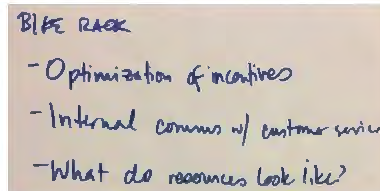 BIKE RACK
- Optimization of incentives
- Internal comms w/ customer service
- What do resources look like?